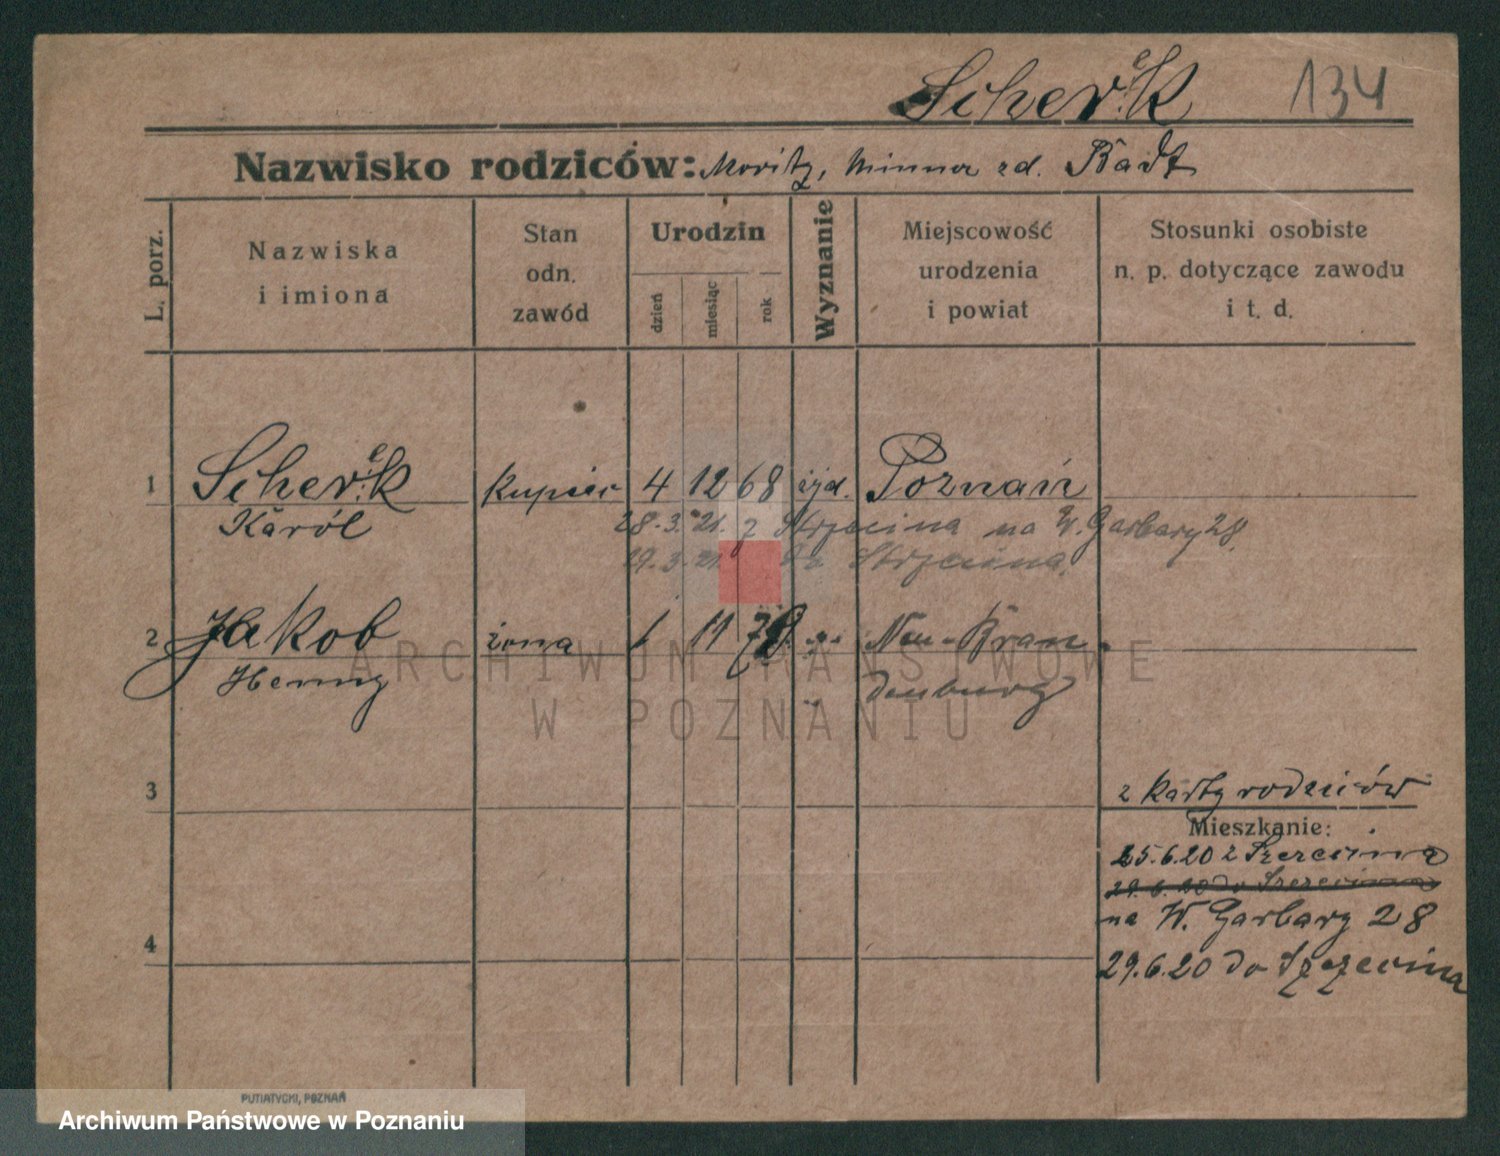 Scherek 134
Nazwisko rodziców: Moritz, Minna zd. Badt
L. porz.
Nazwiska
i imiona
Stan
odn.
zawód
Urodzin
dzień
miesiąc
rok
Wyznanie
Miejscowość
urodzenia
i powiat
Stosunki osobiste
n. p. dotyczące zawodu
i t. d.
1 Scherek kupiec 4 12 68 żyd. Poznań
Karól 28.3.21. z Strzecina na W. Garbary 28.
29.3.21 do Strzecina.
2 Jakob żona 1 11 78 Neu-Bran
Henny denburg
3 z karty rodziców
Mieszkanie:
25.6.20 z Szczecina
29.6.20 do Szczecina
na W. Garbary 28
4
29.6.20 do Szczecina
ARCHIWUM PAŃSTWOWE
W POZNANIU
PUTIATYCKI, POZNAŃ
Archiwum Państwowe w Poznaniu